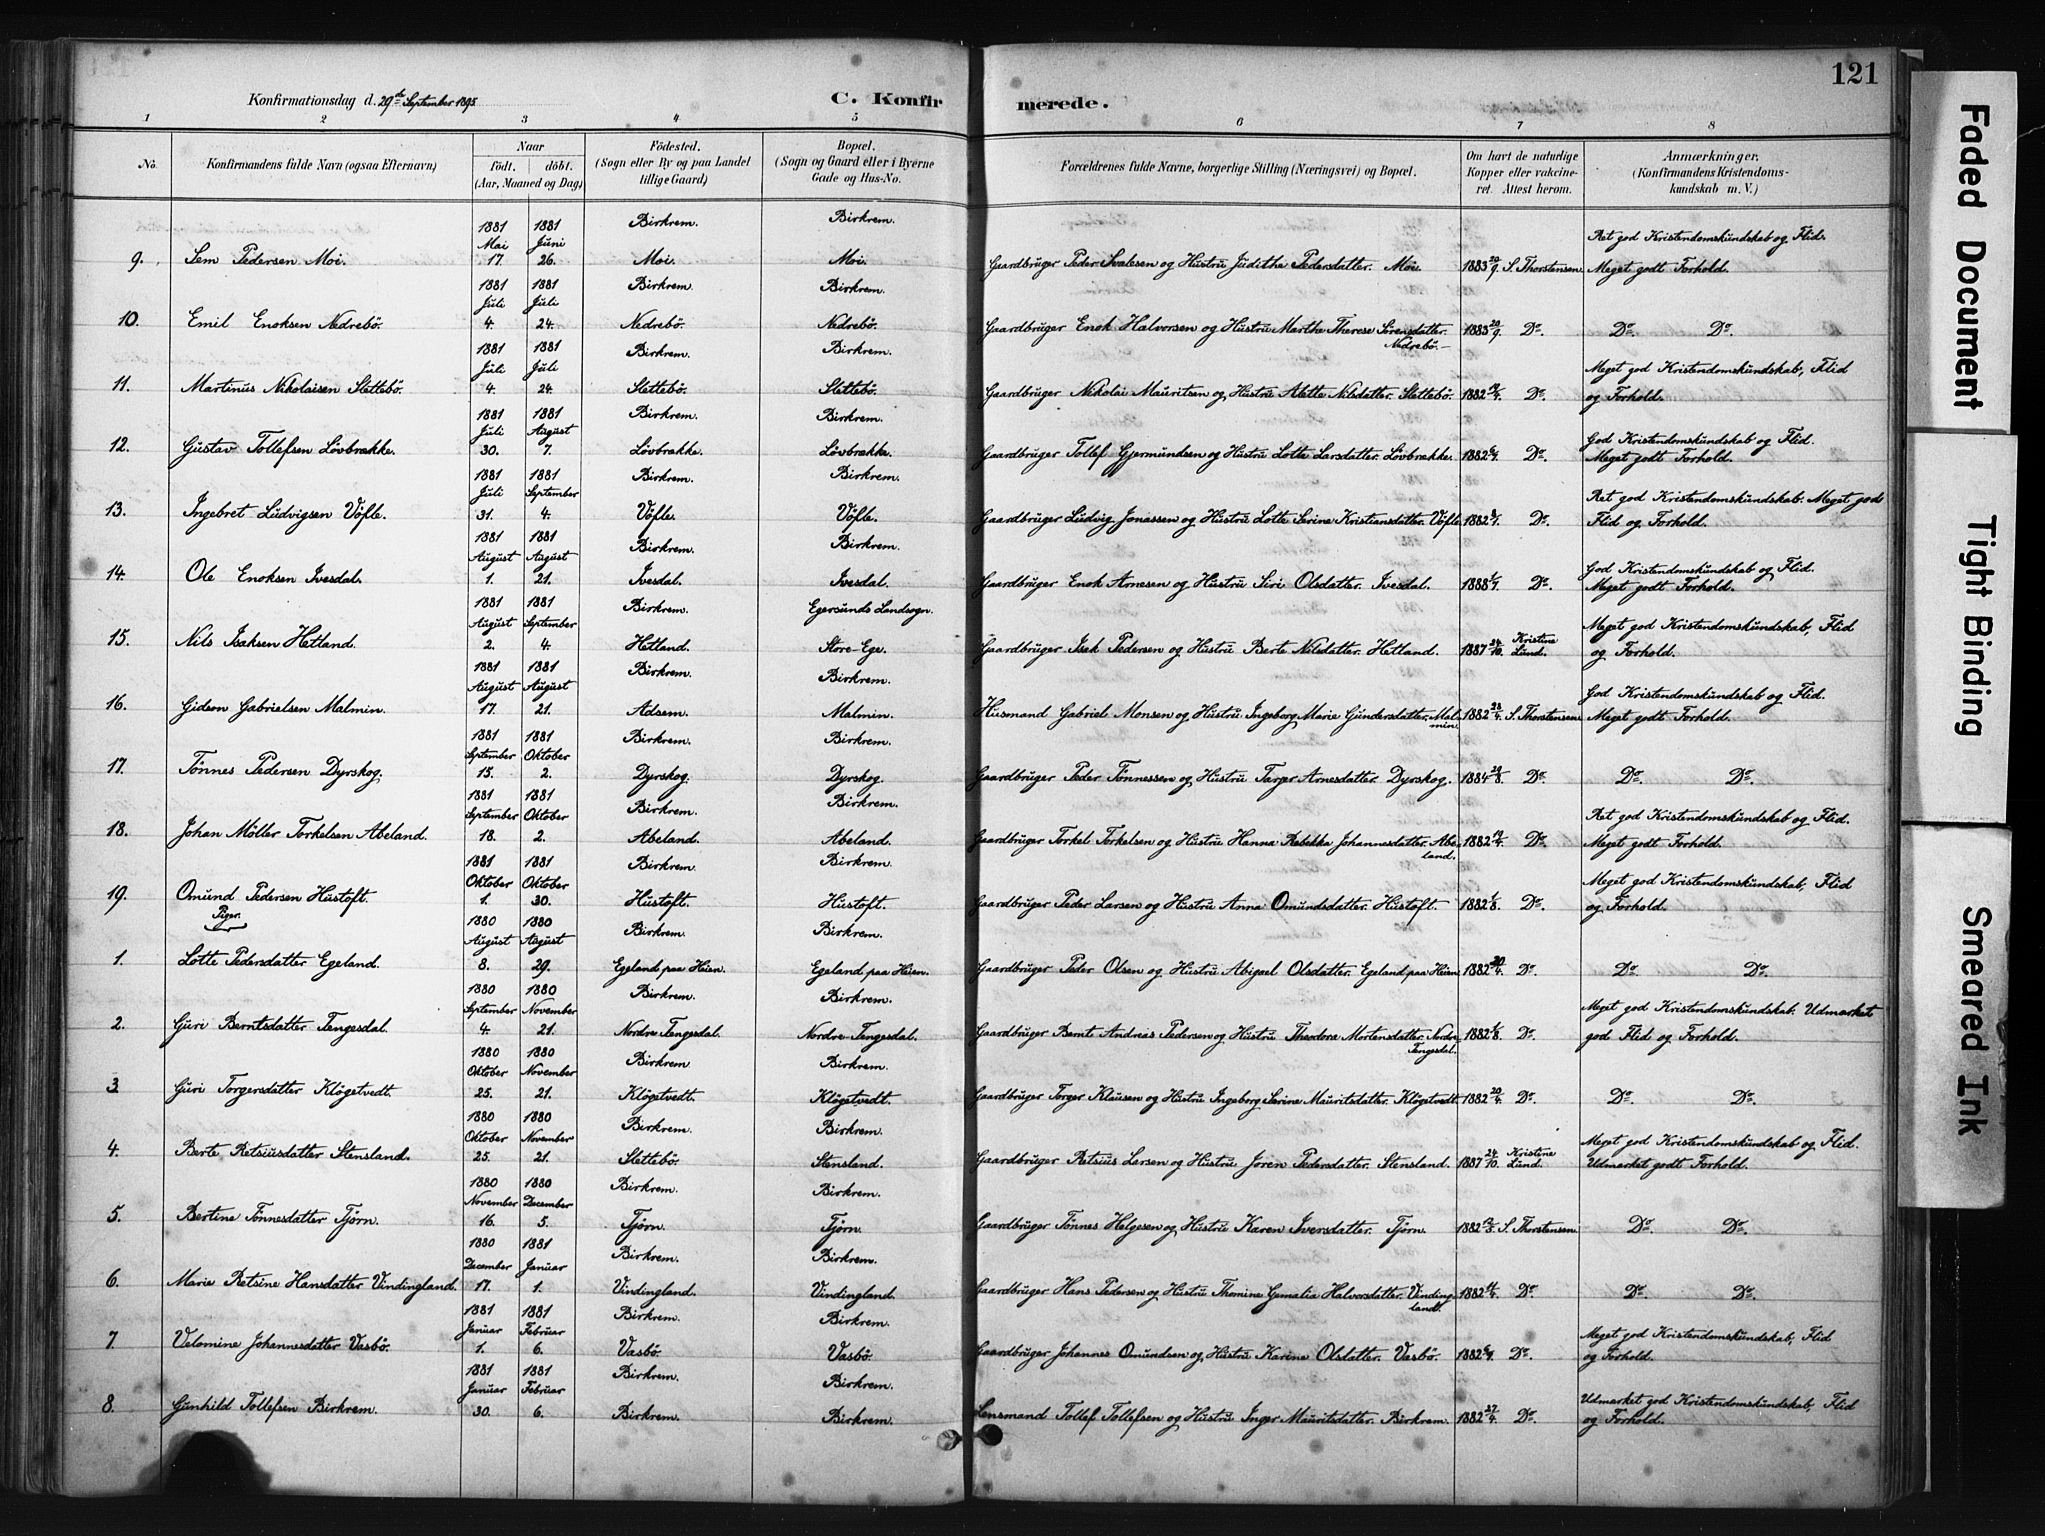 121
Konfirmationsdag d. 29de September 1895
C. Konfirmerede.
1 2 3 4 5 6 7 8
No.
Konfirmandens fulde Navn (ogsaa Efternavn)
Naar
födt. döbt.
(Aar, Maaned og Dag)
Födested.
(Sogn eller By og paa Landet
tillige Gaard)
Bopæl.
(Sogn og Gaard eller i Byerne
Gade og Hus-No.
Forældrenes fulde Navne, borgerlige Stilling (Næringsvei) og Bopæl.
Om havt de naturlige
Kopper eller vakcine-
ret. Attest herom.
Anmærkninger.
(Konfirmandens Kristendoms-
kundskab m. V.)
1881 1881 Birkrem. Birkrem.
Mai Juni Ret god Kristendomskundskab og Flid.
9. Sem Pedersen Moi. 17. 26. Moi. Moi. Gaardbruger Peder Svalesen og Hustru Judithe Pedersdatter. Moi. 1883 20/9. S. Thorstensen. Meget godt Forhold.
1881 1881 Birkrem. Birkrem.
Juli Juli
10. Emil Enoksen Nedrebö. 4. 24. Nedrebö. Nedrebö. Gaardbruger Enok Halvorsen og Hustru Marthe Therese Sörensdatter. Nedrebö. 1883 20/9. Do. Do. Do.
1881 1881 Birkrem. Birkrem.
Juli Juli Meget god Kristendomskundskab, Flid
11. Martinus Nikolaisen Slettebö. 4. 24. Slettebö. Slettebö. Gaardbruger Nikolai Mauritsen og Hustru Alette Nilsdatter. Slettebö. 1882 Do. og Forhold.
1881 1881 Birkrem. Birkrem.
Juli August God Kristendomskundskab og Flid.
12. Gustav Tollefsen Lövbrække. 30. 7. Lövbrække. Lövbrække. Gaardbruger Tollef Gjermundsen og Hustru Lotte Larsdatter. Lövbrække. 1882 Do. Meget godt Forhold.
1881 1881 Birkrem. Birkrem.
Juli September Ret god Kristendomskundskab. Meget god
13. Ingebret Ludvigsen Vöfle. 31. 4. Vöfle. Vöfle. Gaardbruger Ludvig Jonassen og Hustru Lotte Serine Kristiansdatter. Vöfle 1882 Do. Flid og Forhold.
1881 1881 Birkrem. Birkrem.
August August God Kristendomskundskab og Flid.
14. Ole Enoksen Ivesdal. 1. 21. Ivesdal. Ivesdal. Gaardbruger Enok Arnesen og Hustru Siri Olsdatter. Ivesdal. 1888 Do. Meget godt Forhold.
1881 1881 Birkrem. Egersunds Landsogn.
August September Meget god Kristendomskundskab, Flid
15. Nils Isaksen Hetland. 2. 4. Hetland. Store-Ege. Gaardbruger Isak Pedersen og Hustru Berte Nilsdatter. Hetland. 1887 24/10. Kristine Lund. og Forhold.
1881 1881 Birkrem. Birkrem.
August August God Kristendomskundskab og Flid.
16. Gideon Gabrielsen Malmin. 17. 21. Adsem. Malmin. Husmand Gabriel Monsen og Hustru Ingeborg Marie Gundersdatter. Malmin. 1882 28/4. S. Thorstensen. Meget godt Forhold.
1881 1881 Birkrem. Birkrem.
September Oktober
17. Tönnes Pedersen Dyrskog. 15. 2. Dyrskog. Dyrskog. Gaardbruger Peder Tönnessen og Hustru Targer Arnesdatter. Dyrskog. 1884 Do. Do. Do.
1881 1881 Birkrem. Birkrem.
September Oktober Ret god Kristendomskundskab og Flid.
18. Johan Möller Torkelsen Abeland. 18. 2. Abeland. Abeland. Gaardbruger Torkel Torkelsen og Hustru Hanna Rebekka Johannesdatter. Abeland. 1882 19/4. Do. Meget godt Forhold.
1881 1881 Birkrem. Birkrem.
Oktober Oktober Meget god Kristendomskundskab, Flid
19. Omund Pedersen Hustoft. 1. 30. Hustoft. Hustoft. Gaardbruger Peder Larsen og Hustru Anna Omundsdatter. Hustoft. 1882 1/8. Do. og Forhold.
Piger.
1880 1880 Birkrem. Birkrem.
August August
1. Lotte Pedersdatter Egeland. 8. 29. Egeland paa Heien. Egeland paa Heien. Gaardbruger Peder Olsen og Hustru Abigael Olsdatter. Egeland paa Heien 1882 20/4. Do. Do. Do.
1880 1880 Birkrem. Birkrem.
September November Meget god Kristendomskundskab. Udmærket
2. Guri Berntsdatter Tengesdal. 4. 21. Nordre-Tengesdal. Nordre-Tengesdal. Gaardbruger Bernt Andreas Pedersen og Hustru Theodora Mortensdatter. Nordre Tengesdal. 1882 1/8. Do. god Flid og Forhold.
1880 1880 Birkrem Birkrem.
Oktober November
3 Guri Torgersdatter Klögetvedt. 25. 21. Klögetvedt. Klögetvedt. Gaardbruger Torger Klausen og Hustru Ingeborg Serine Mauritsdatter. Klögetvedt. 1882 20/4. Do. Do. Do.
1880 1880 Birkrem. Birkrem.
Oktober November Meget god Kristendomskundskab og Flid.
4. Berte Retsiusdatter Stensland. 25. 21. Slettebö. Stensland. Gaardbruger Retsius Larsen og Hustru Joren Pedersdatter. Stensland. 1887 24/10. Kristine Lund. Udmærket godt Forhold.
1880 1880 Birkrem. Birkrem.
November December
5. Bertine Tönnesdatter Tjörn. 16. 5. Tjörn. Tjörn. Gaardbruger Tönnes Helgesen og Hustru Karen Iversdatter. Tjörn. 1882 S. Thorstensen. Do. Do.
1880 1881 Birkrem. Birkrem.
December Januar
6. Marie Retsine Hansdatter Vindingland. 17. 1. Vindingland. Vindingland. Gaardbruger Hans Pedersen og Hustru Thomine Gemalie Halvorsdatter. Vindingland. 1882 Do. Do. Do.
1881 1881 Birkrem. Birkrem.
Januar Februar Meget god Kristendomskundskab, Flid
7. Velomine Johannesdatter Vasbö. 1. 6. Vasbö. Vasbö. Gaardbruger Johannes Omundsen og Hustru Karine Olsdatter. Vasbö. 1882 Do. og Forhold.
1881 1881 Birkrem. Birkrem.
Januar Februar Udmærket god Kristendomskundskab, Flid
8. Gunhild Tollefsen Birkrem. 30. 6. Birkrem. Birkrem. Lensmand Tollef Tollefsen og Hustru Inger Mauritsdatter. Birkrem. 1882 27/4. Do. og Forhold.
Faded Document
Tight Binding
Smeared Ink